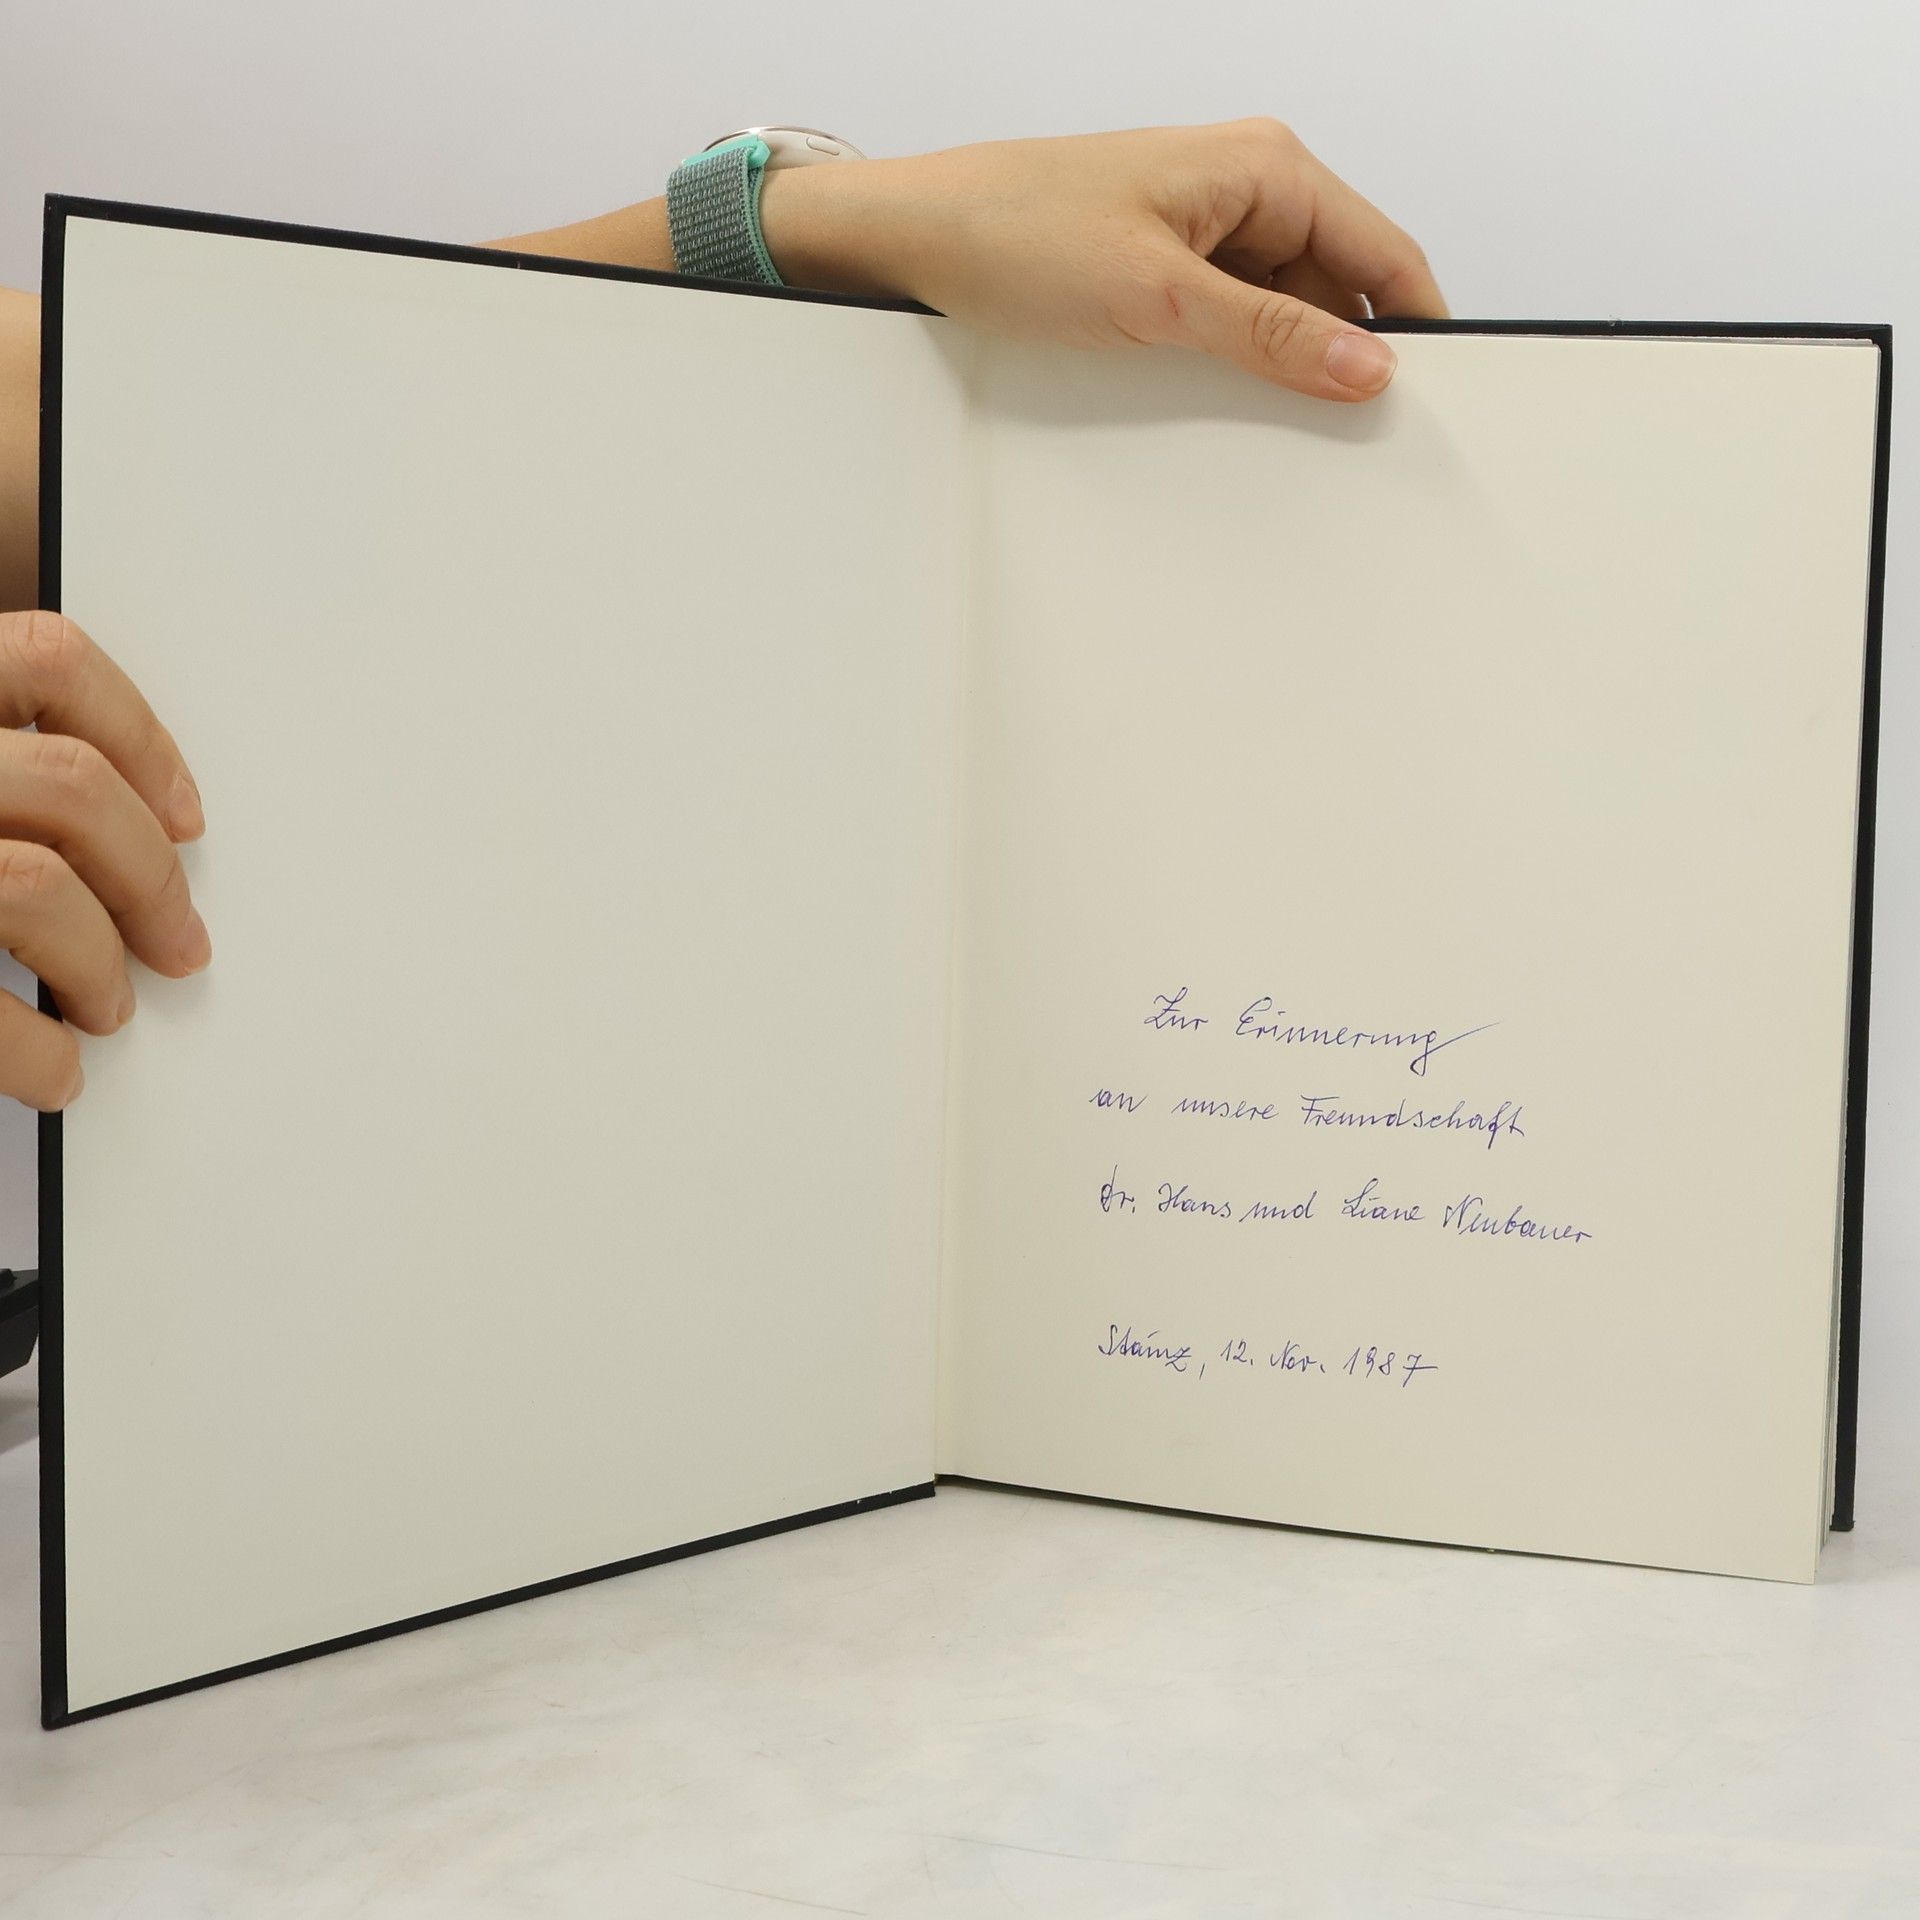 Zur Erinnerung
an unsere Freundschaft
Dr. Hans und Liane Neubauer
Stainz, 12. Nov. 1987